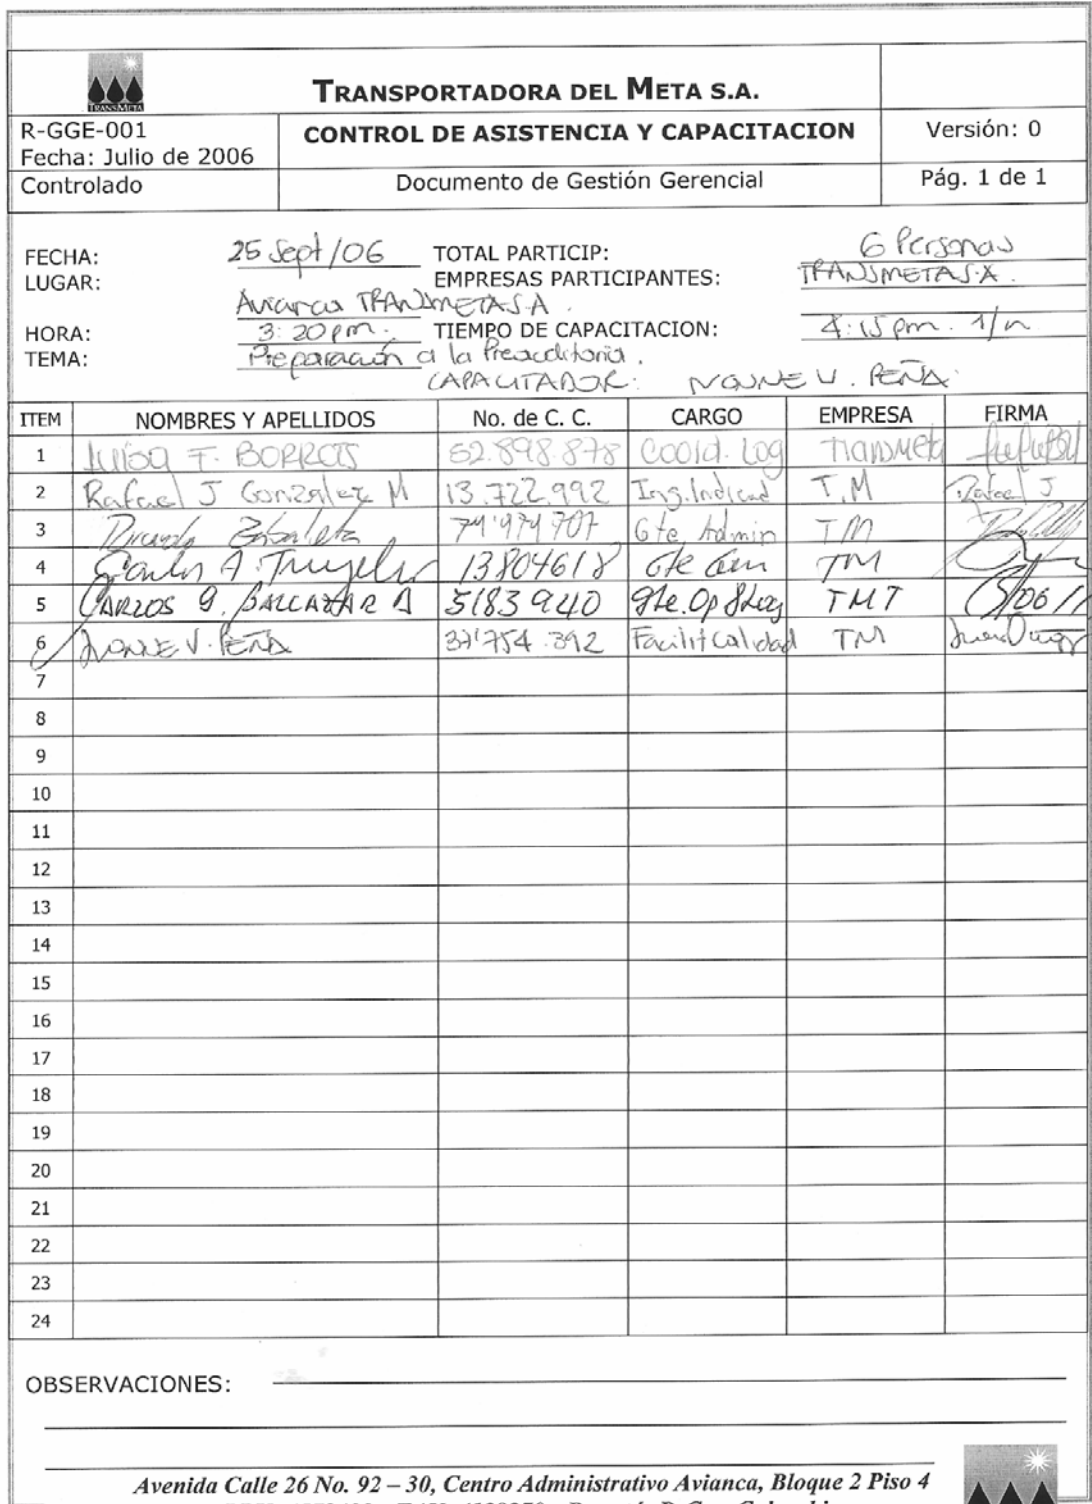 TRANSMETA
TRANSPORTADORA DEL META S.A.
R-GGE-001
Fecha: Julio de 2006
CONTROL DE ASISTENCIA Y CAPACITACION
Versión: 0
Controlado
Documento de Gestión Gerencial
Pág. 1 de 1
FECHA: 25 Sept/06 TOTAL PARTICIP: 6 Personas
LUGAR: Avianca TRANSMETA S.A. EMPRESAS PARTICIPANTES: TRANSMETA S.A.
HORA: 3:20 pm. TIEMPO DE CAPACITACION: 4:15 pm.
TEMA: Preparación a la Preauditoria.
CAPACITADOR: V. PEÑA
ITEM NOMBRES Y APELLIDOS No. de C. C. CARGO EMPRESA FIRMA
1 F. 52.898.878 Coord. Log Transmeta
2 Rafael J González M 13.722.992 Ing. Indicad T.M Rafael J
3 Ricardo 74'974707 Gte Admin TM
4 Carlos A. Trujillo 13804618 Gte Com TM
5 CARLOS BALCAZAR 5183940 Gte. Op & Log TMT
6 V. PEÑA 37'754.392 Facilit Calidad TM
7
8
9
10
11
12
13
14
15
16
17
18
19
20
21
22
23
24
OBSERVACIONES:
Avenida Calle 26 No. 92 – 30, Centro Administrativo Avianca, Bloque 2 Piso 4